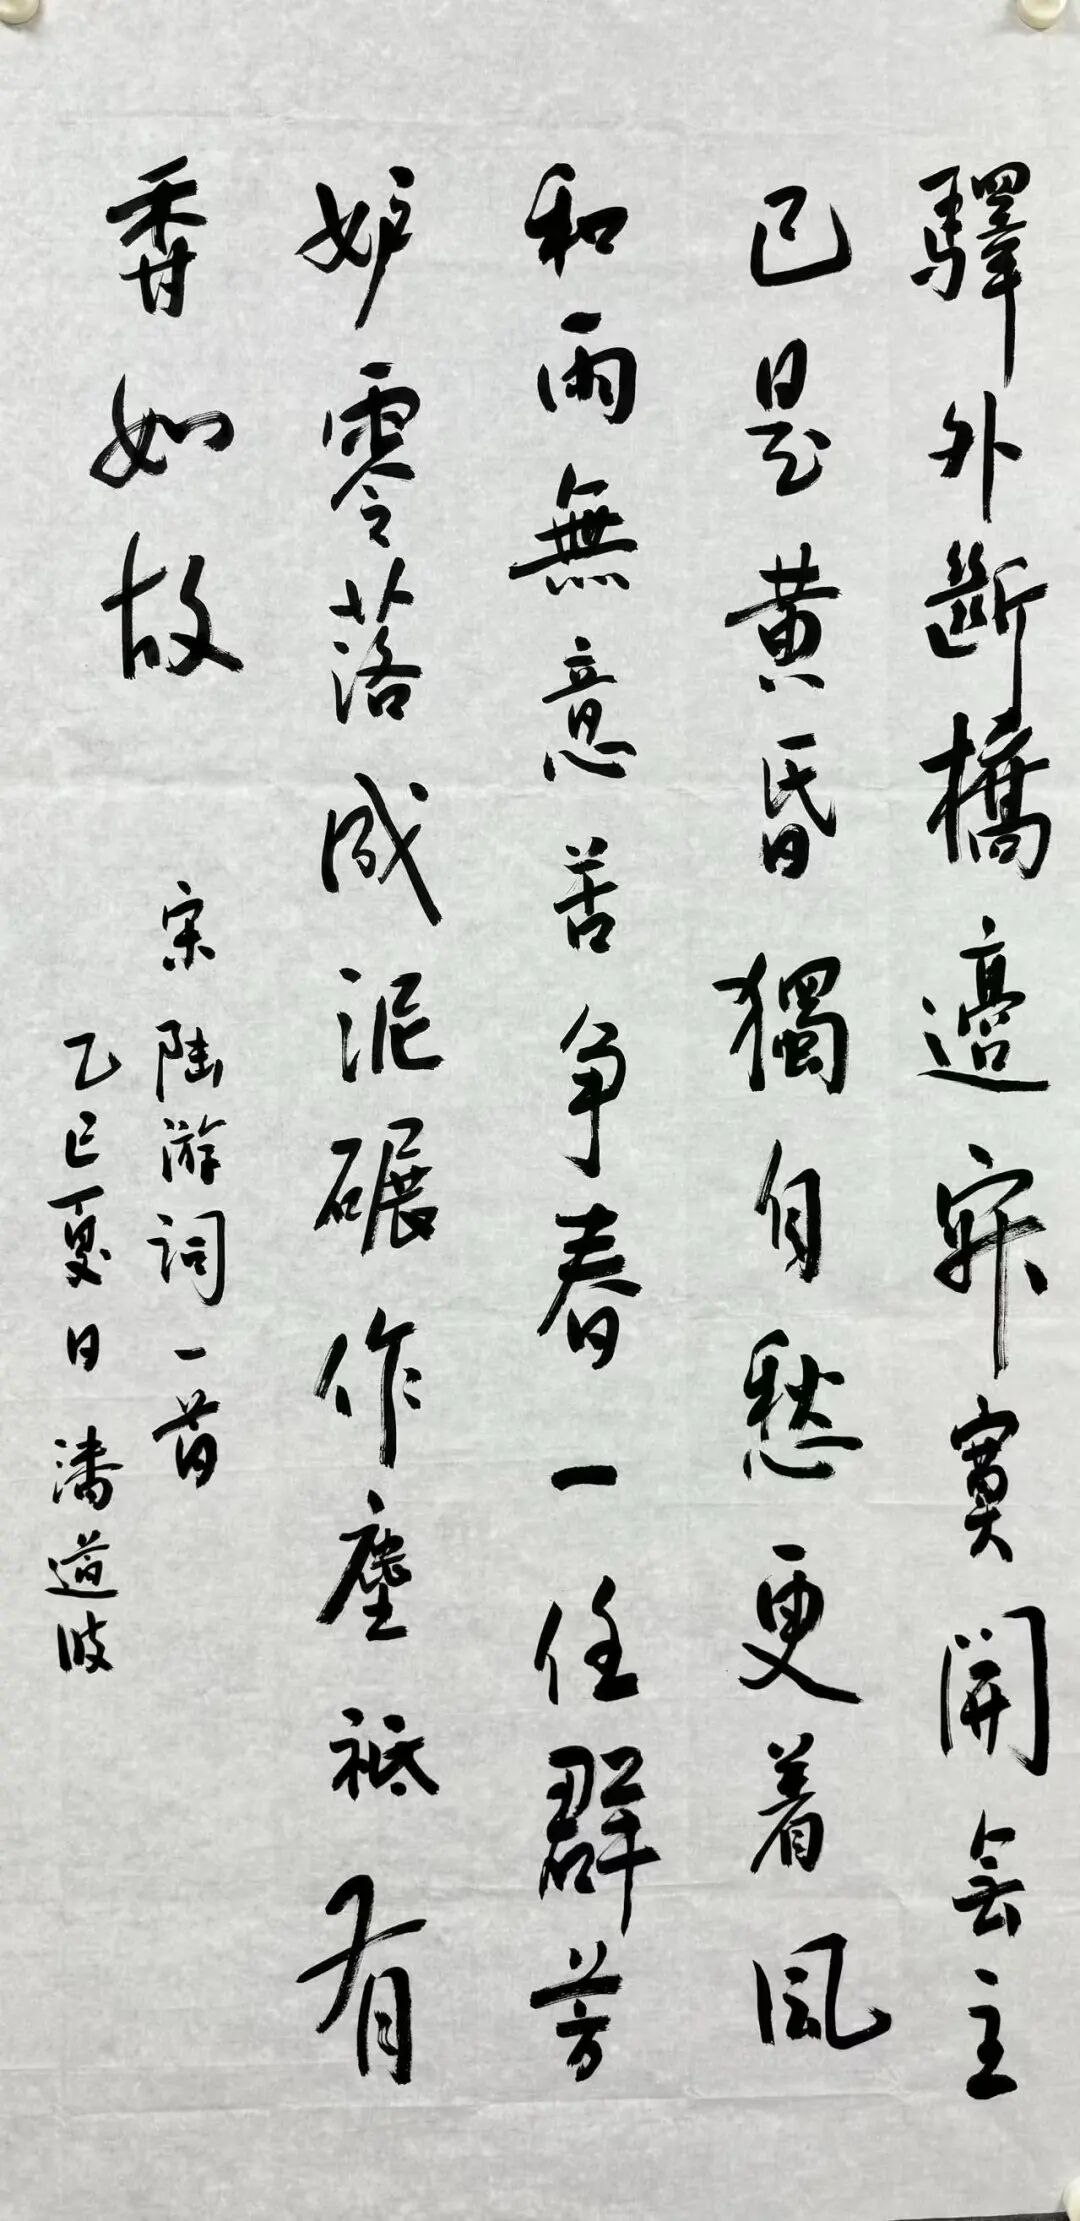 驛外斷橋邊寂寞開無主
已是黄昏獨自愁更着風
和雨無意苦争春一任群芳
妒零落成泥碾作塵祇有
香如故
宋陆游词一首
乙巳夏日潘道波